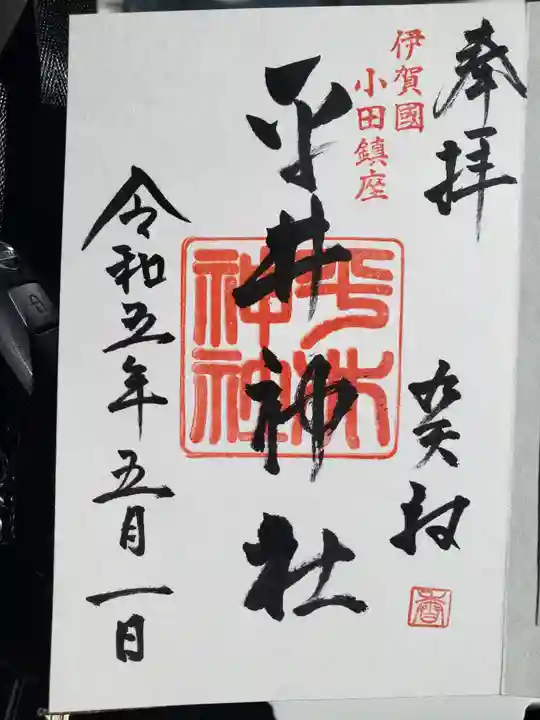 奉拝
癸卯
伊賀國
小田鎮座
平井神社
平井神社
令和五年五月一日